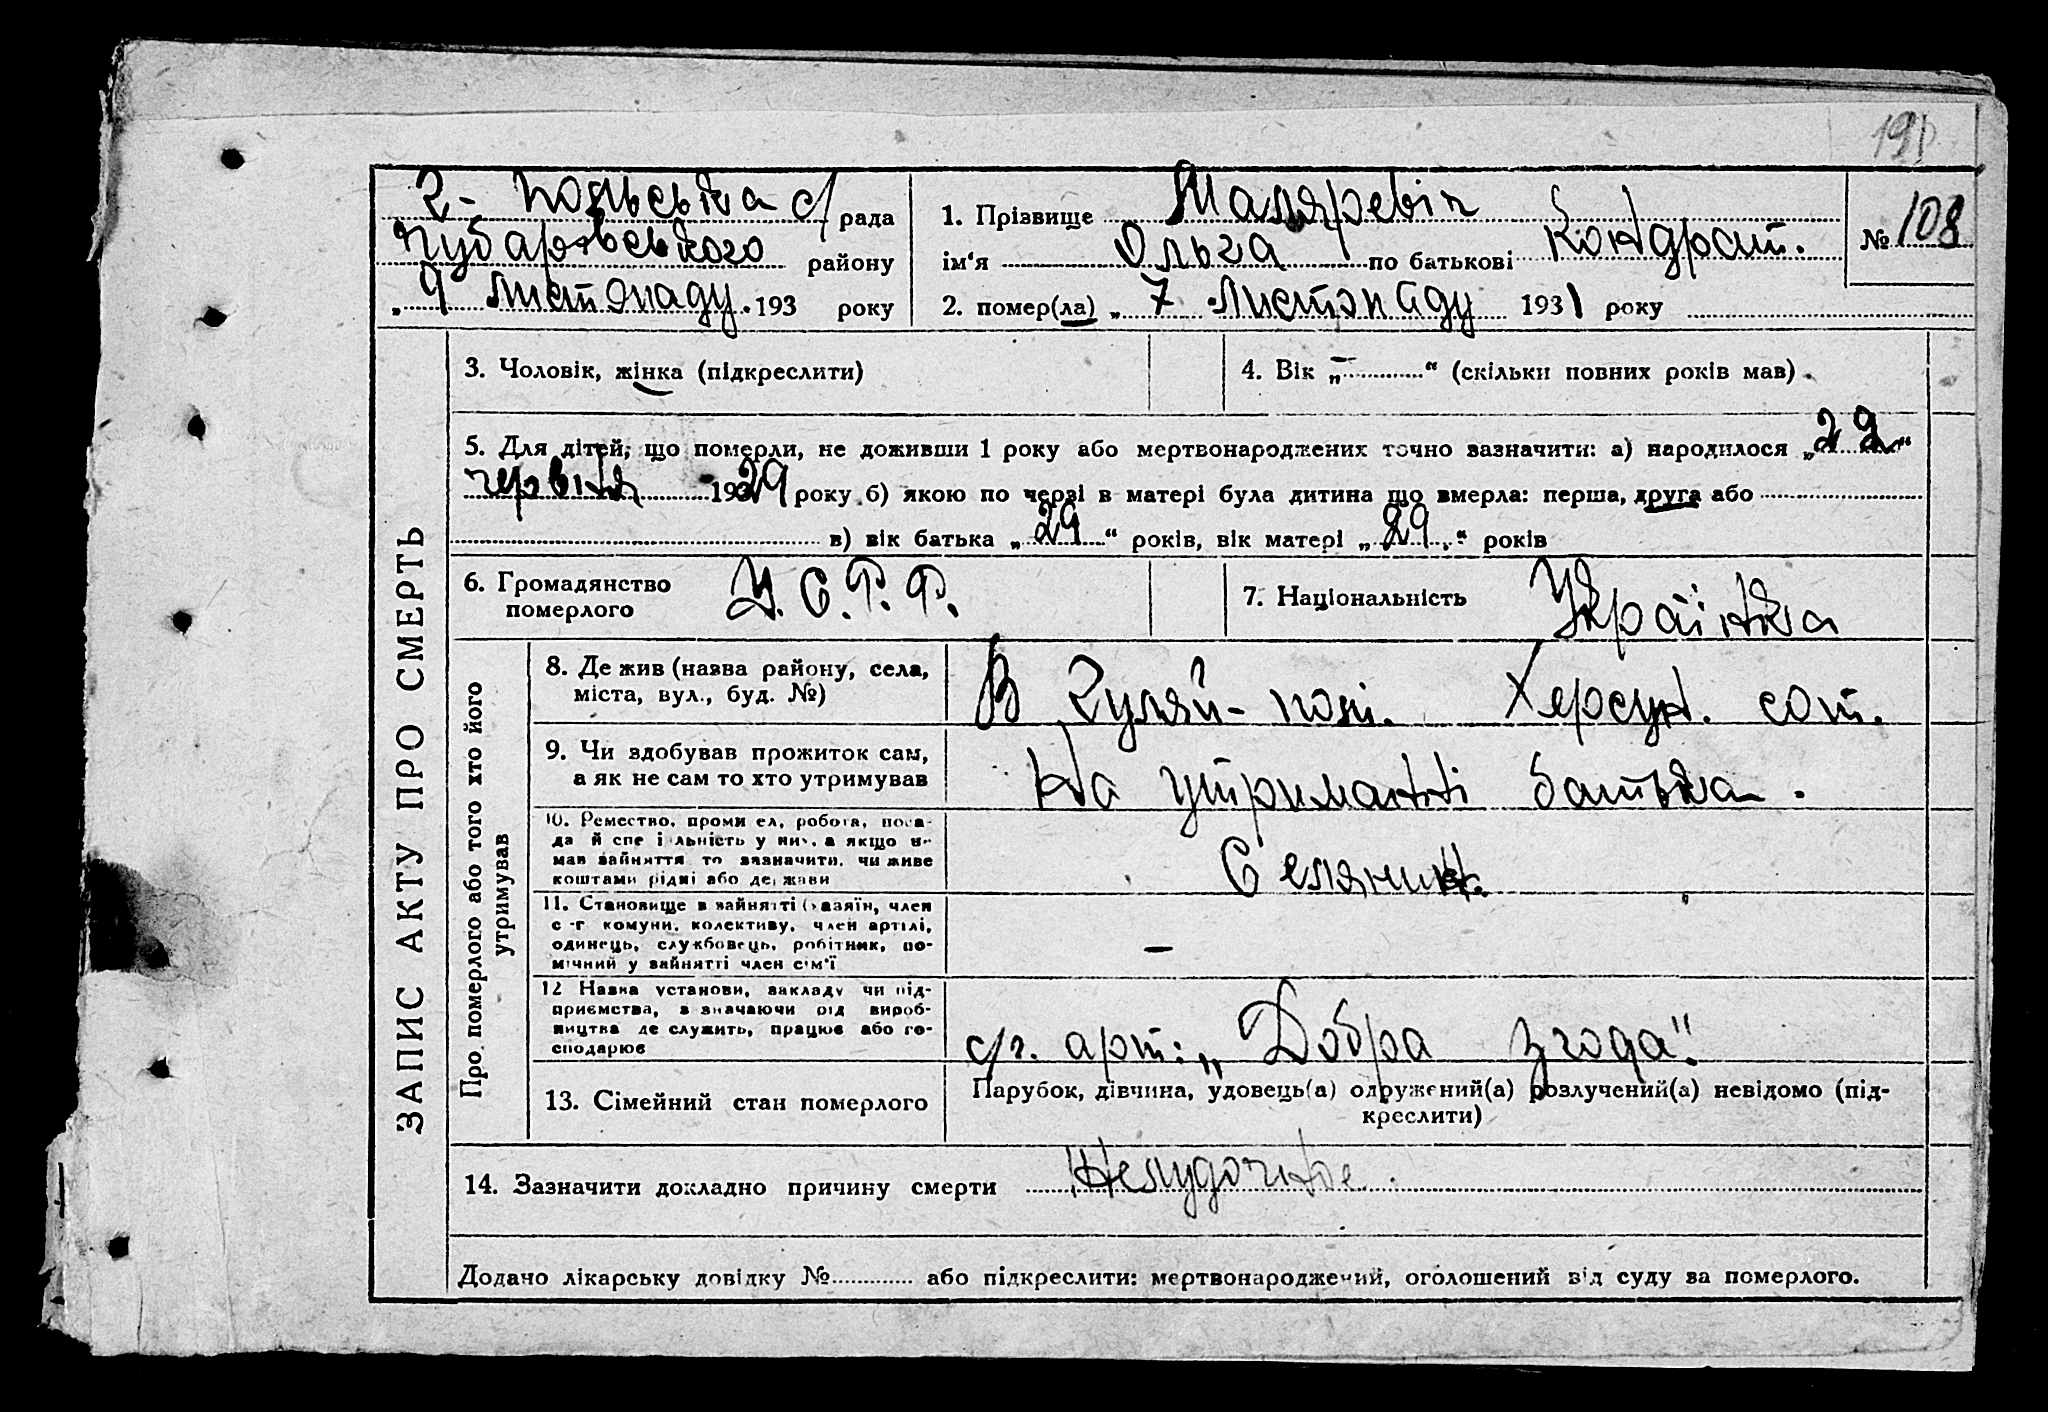 191
2- польська с/ рада
Чубарівського району
„ 9 листопаду. 193 року
1. Прізвище Маляревіч
ім'я Ольга по батькові Кондрат.
2. помер(ла) „ 7 листопаду 1931 року
№ 108
ЗАПИС АКТУ ПРО СМЕРТЬ
3. Чоловік, жінка (підкреслити)
4. Вік „-“ (скільки повних років мав)
5. Для дітей, що померли, не доживши 1 року або мертвонароджених точно зазначити: а) народилося „22“
червіня 1929 року б) якою по черзі в матері була дитина що вмерла: перша, друга або
в) вік батька „29“ років, вік матері „29“ років
6. Громадянство
померлого
У.С.Р.Р.
7. Національність Українка
Про померлого або того хто його
утримував
8. Де жив (назва району, села,
міста, вул., буд. №)
В Гуляй-полі. Херсун. сот.
9. Чи здобував прожиток сам,
а як не сам то хто утримував
На утриманні батька.
10. Ремество, проми ел, робота, поса-
да й спе і льність у ни, а якщо н-
мав зайняття то зазначити, чи живе
коштами рідні або держави
Селянин.
11. Становище в зайнятті (хазяїн, член
с-г комуни, колективу, член артілі,
одинець, службовець, робітник, по-
мічний у зайнятті член сім'ї
-
12 Назва установи, закладу чи під-
приємства, зазначаючи рід вироб-
ництва де служить, працює або го-
сподарює
с/г. арт: „Добра згода".
13. Сімейний стан померлого
Парубок, дівчина, удовець(а) одружений(а) розлучений(а) невідомо (під-
креслити)
14. Зазначити докладно причину смерти
Додано лікарську довідку № або підкреслити: мертвонароджений, оголошений від суду за померлого.